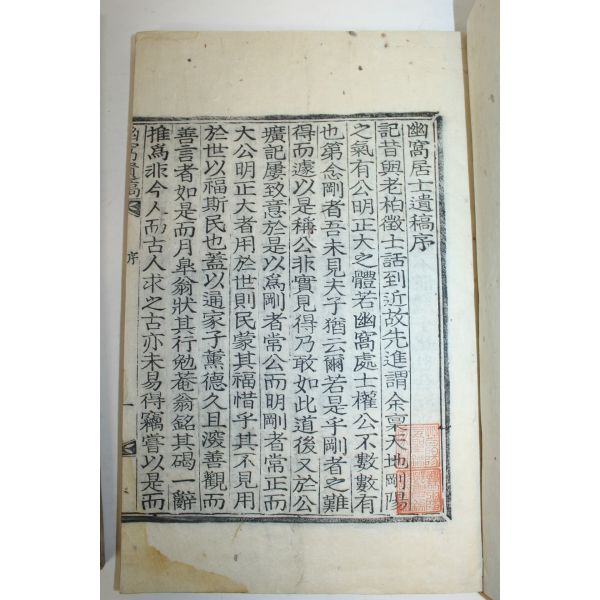 幽窩居士遺稿序
記昔與老柏徵士話到近故先進謂余稟天地剛陽
之氣有公明正大之體若幽窩處士權公不數數有
也第念剛者吾未見夫子猶云爾若是乎剛者之難
得而遽以是稱公非實見得乃敢如此道後又於公
壙記屢致意於是以爲剛者常公而明剛者常正而
大公明正大者用於世則民蒙其福惜乎其不見用
於世以福斯民也蓋以通家子薰德久且深善觀而
善言者如是而月皐翁狀其行勉菴翁銘其碣一辭
推爲非今人而古人求之古亦未易得竊嘗以是而
幽窩遺稿
序
一